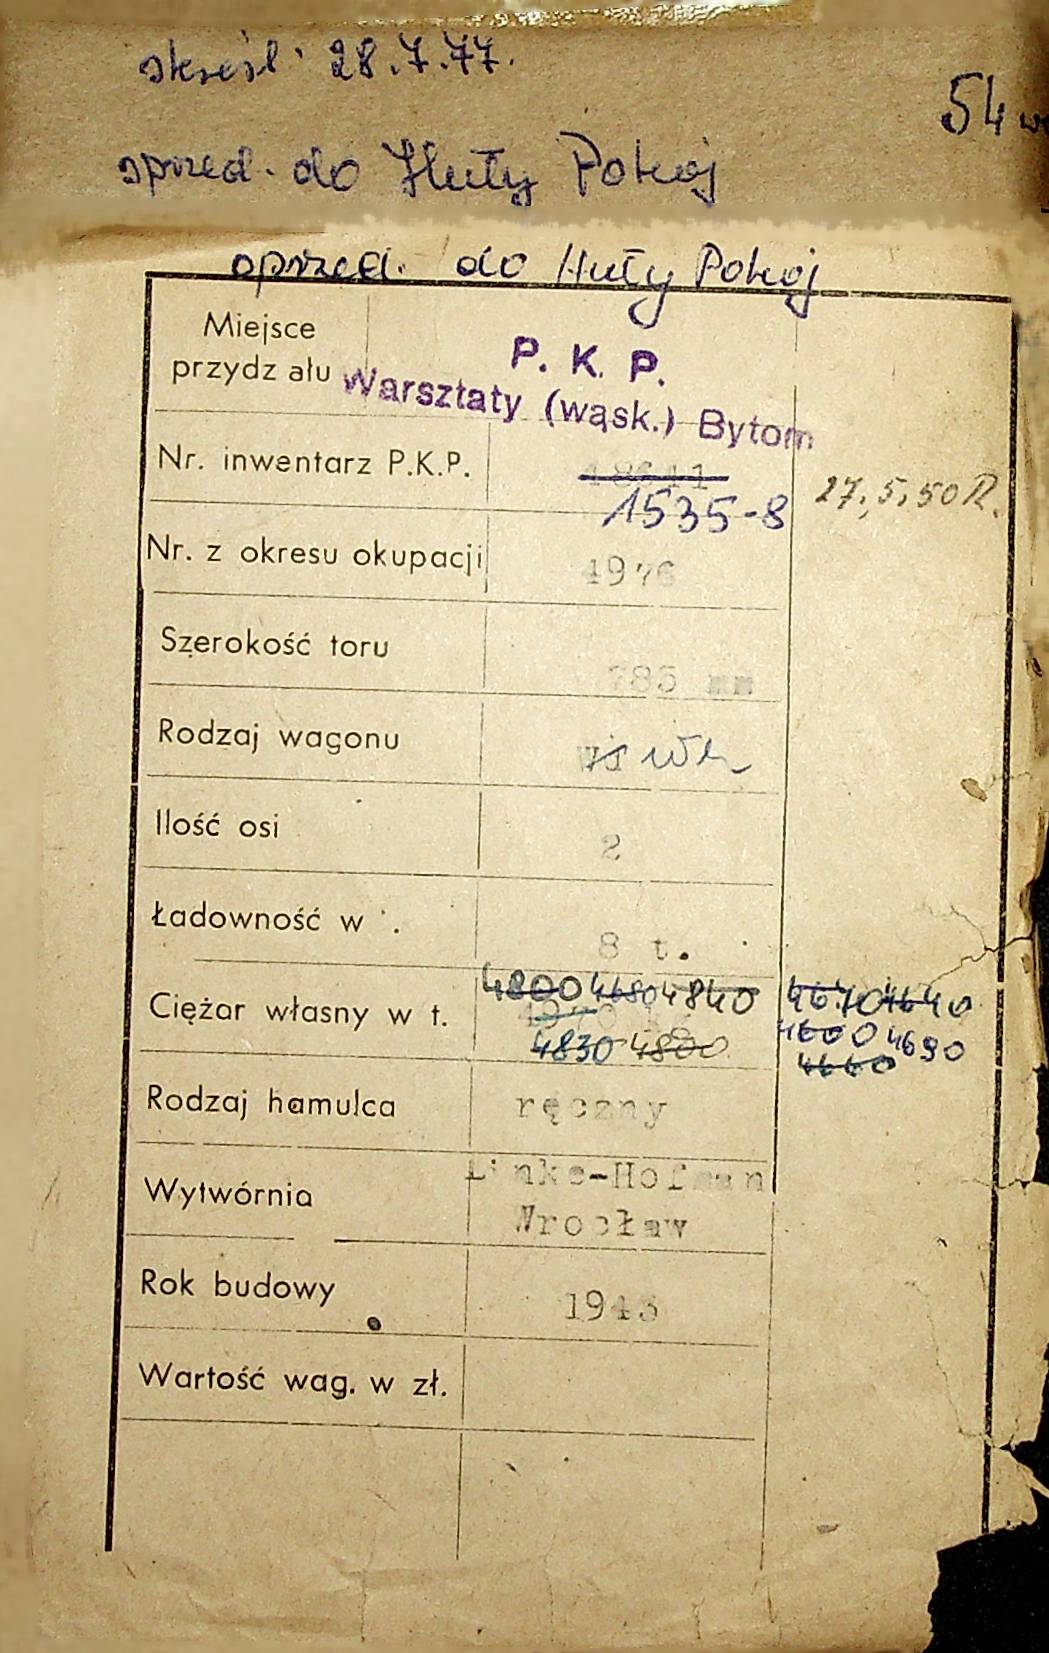 skreśl. 28.7.77.
54
sprzed. do Huty Pokój
sprzed. do Huty Pokój
Miejsce
przydz ału
P. K. P.
Warsztaty (wąsk.) Bytom
Nr. inwentarz P.K.P.
1535-8 27.5.50 R.
Nr. z okresu okupacji 4976
Szerokość toru 785 mm
Rodzaj wagonu
Ilość osi 2
Ładowność w . 8 t.
4800 4680 4840 4670 4640
Ciężar własny w t.
4830 4800 4600 4690
4660
Rodzaj hamulca ręczny
Wytwórnia Linke-Hofman
Wrocław
Rok budowy 1943
Wartość wag. w zł.